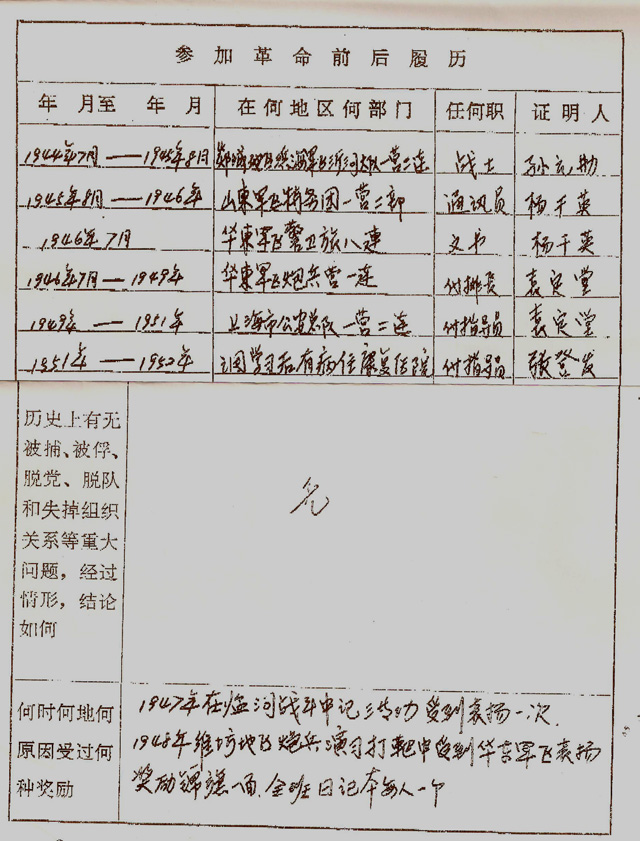 参加革命前后履历
年 月至 年 月 在何地区何部门 任何职 证明人
1944年7月——1945年8月 军区沂河大队一营二连 战士 孙元勋
1945年8月——1946年 山东军区特务团一营二部 通讯员 杨干英
1946年7月 华东军区警卫旅八连 文书 杨干英
1946年7月——1949年 华东军区炮兵营一连 付排长 袁定堂
1949年——1951年 上海市公安总队一营二连 付指导员 袁定堂
1951年——1952年 调学习后有病住康复医院 付指导员 张登发
历史上有无
被捕、被俘、
脱党、脱队
和失掉组织
关系等重大
问题，经过
情形，结论
如何
无
何时何地何
原因受过何
种奖励
1947年在临河战斗中记三等功受到表扬一次.
1948年潍坊地区炮兵演习打靶中受到华东军区表扬
奖励锦旗一面.全班日记本每人一个